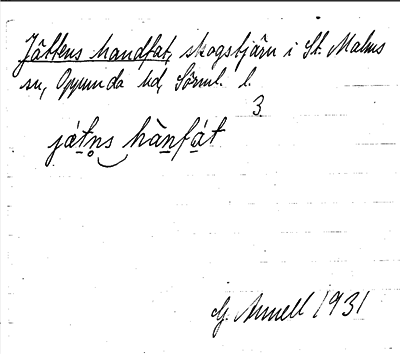 Jättens handfat, skogstjärn i St. Malms
sn, Oppunda hd, Sörml. l.
3
játn̥s hànfát
G. Annell 1931